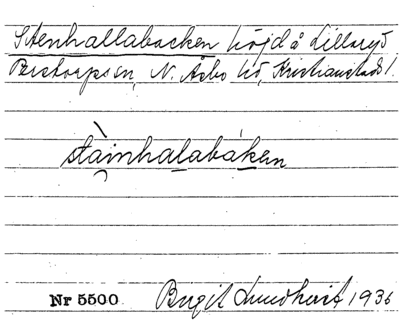 Stenhallabacken höjd å Lillaryd
Perstorps sn, N. Åsbo hd, Kristianstads l.
stàinhalabáken
Nr 5500 Birgit Lundkvist 1936